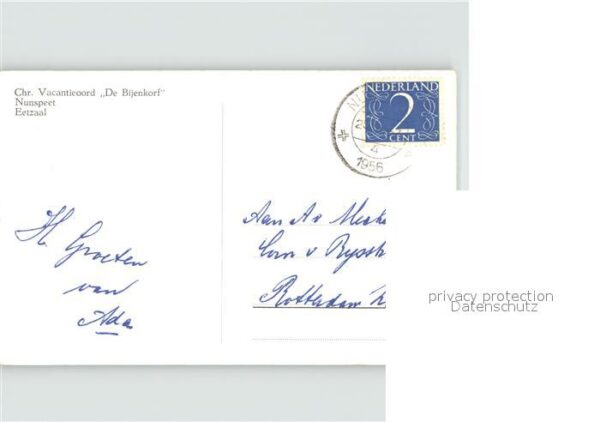 Chr. Vacantieoord „De Bijenkorf"
Nunspeet
Eetzaal
NEDERLAND
2
CENT
1956
H. Groeten
van
Ada
Aan A v
Corn v
Rotterdam
privacy protection
Datenschutz